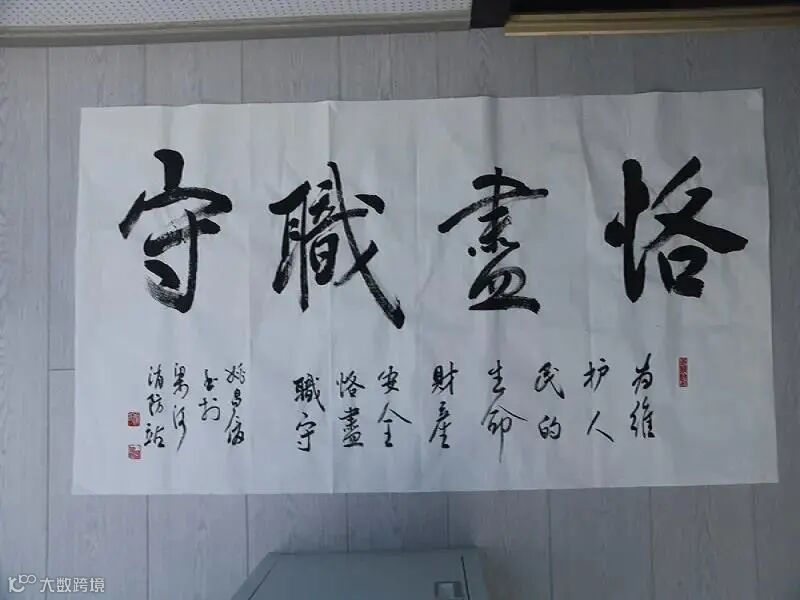 恪盡職守
为维
护人
民的
生命
財產
安全
恪盡
職守
梁河
消防站
大数跨境